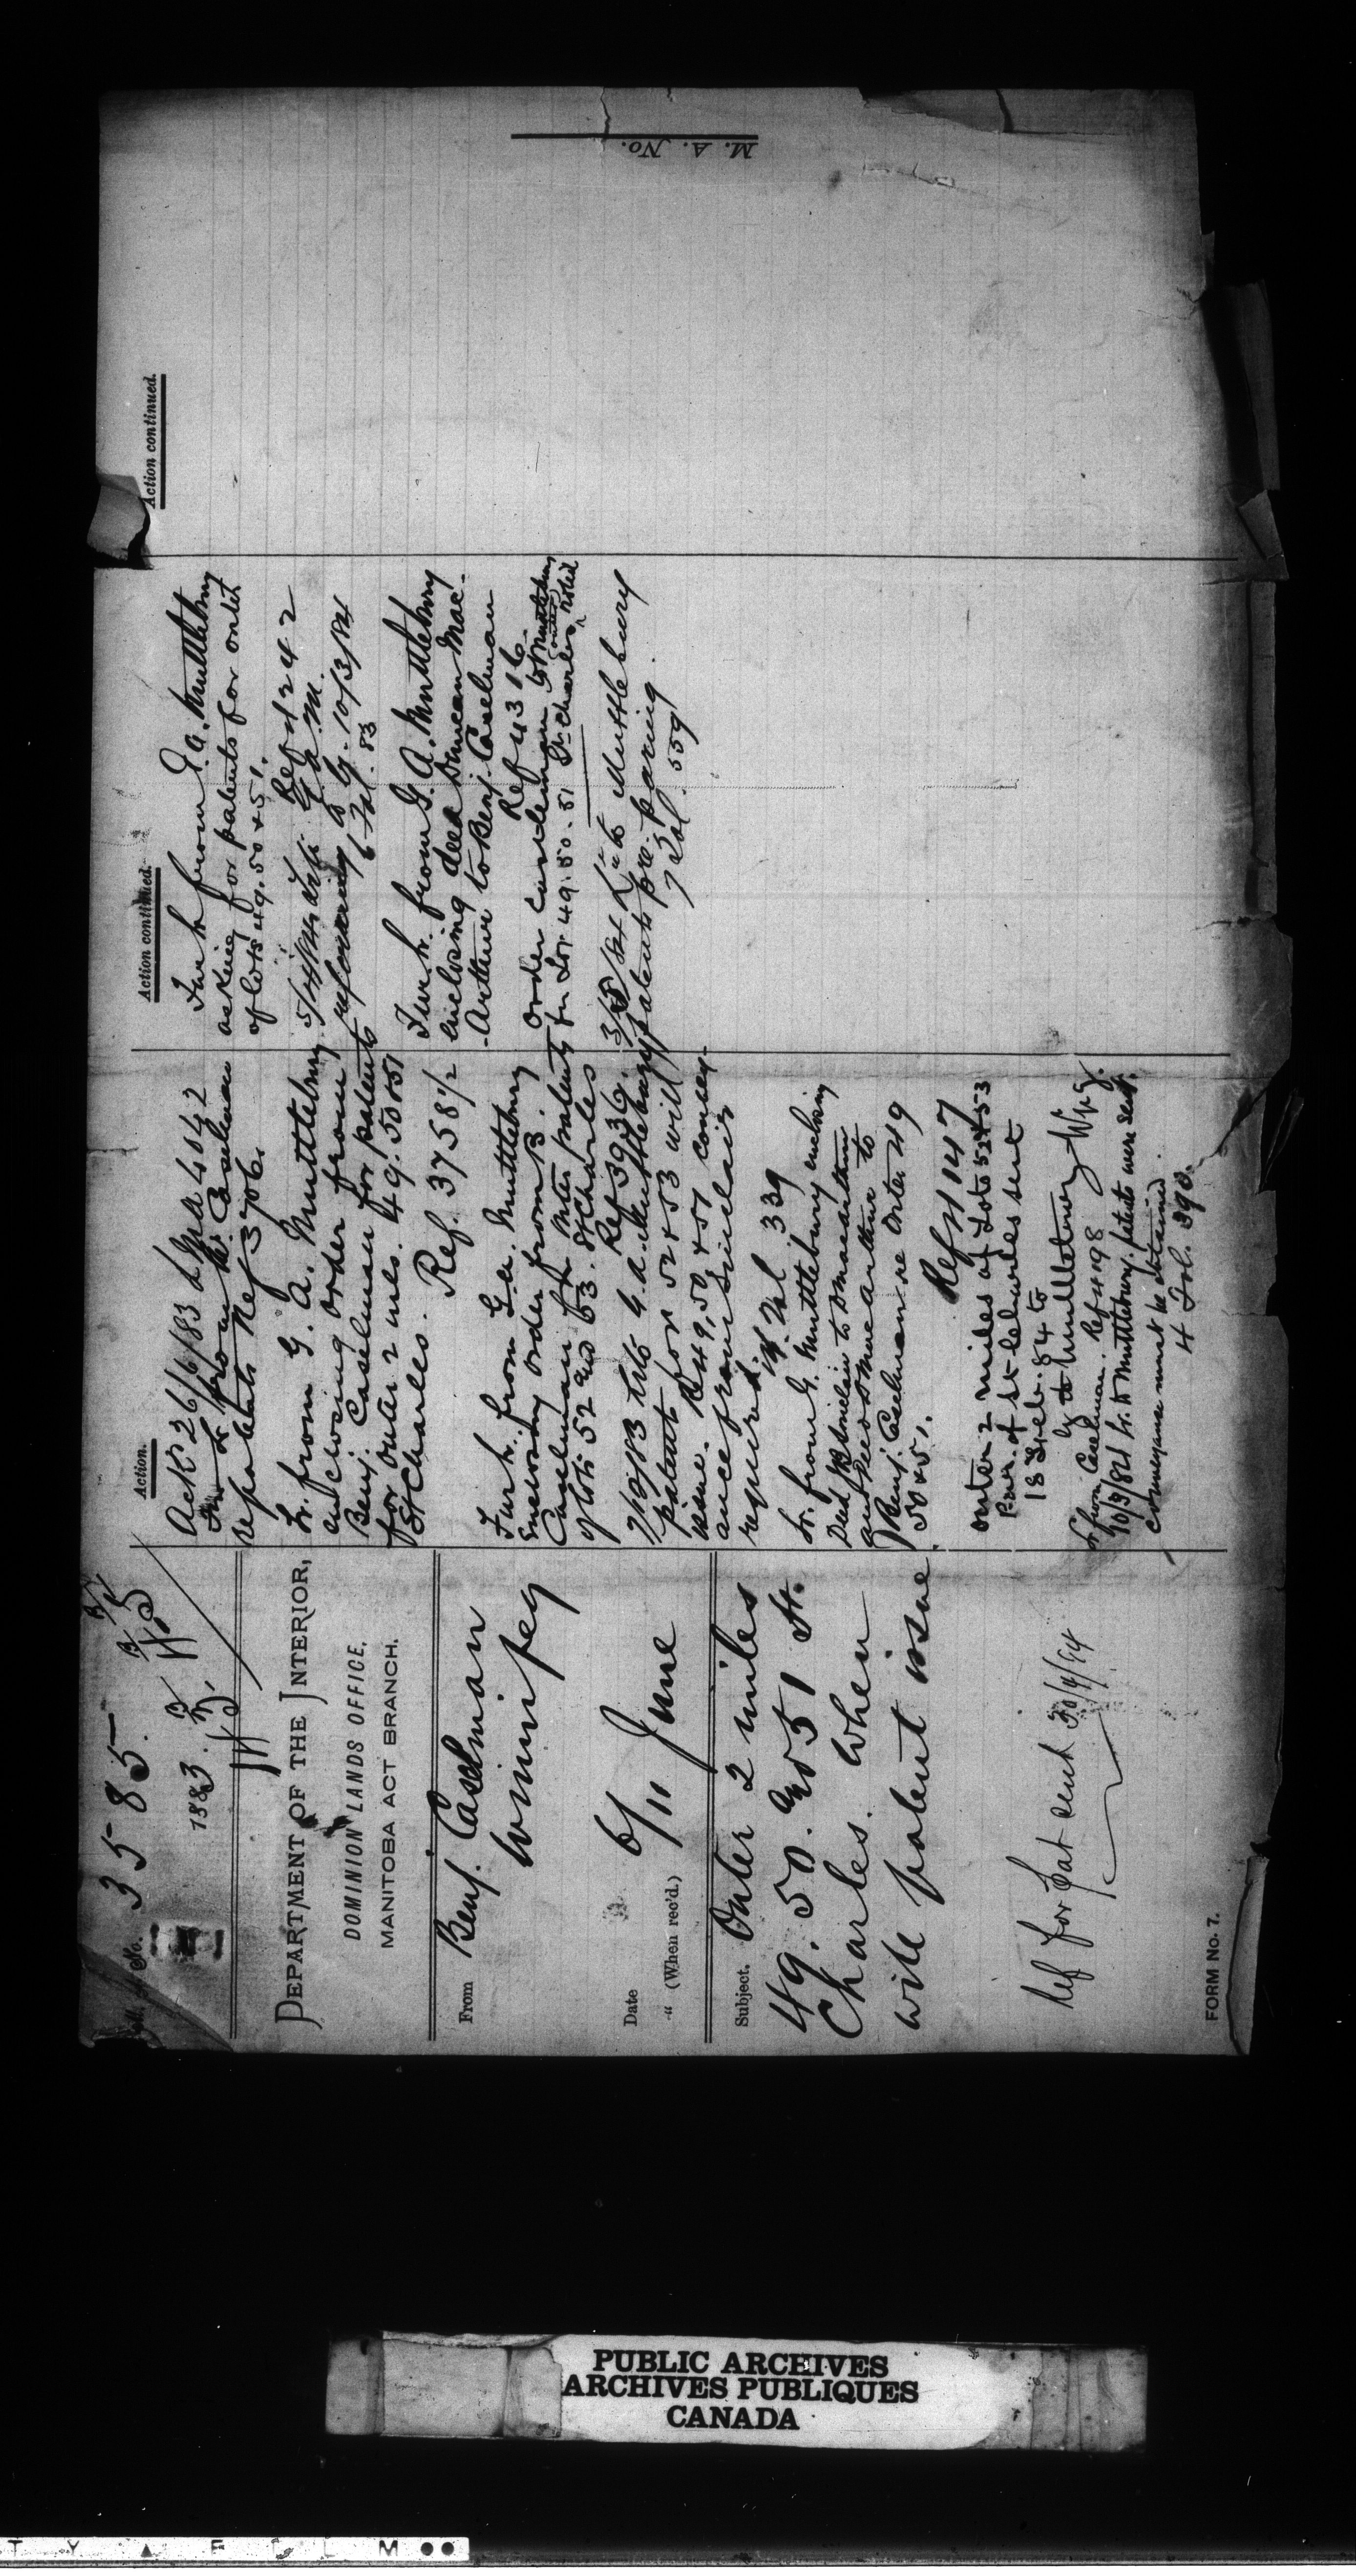 No. 3585
1883
DEPARTMENT OF THE INTERIOR,
DOMINION LANDS OFFICE,
MANITOBA ACT BRANCH.
From Benj. Caselman
Winnipeg
Date 6/ June
" (When rec'd.) 11
Subject. Outer 2 miles
49. 50. and 51 St.
Charles. When
will patent issue
Ref for Pat sent 30/4/84
FORM No. 7.
Action.
Ack'd 26/6/83
Fur. Lr. from Mr. Caselman
re patents Ref 3706.
Lr. from G. A. Muttlebury
enclosing order from
Benj. Caselman for patents
for outer 2 miles. 49. 50 & 51
St Charles. Ref. 3758½
Fur Lr. from G. A. Muttlebury
Enclosing order from B.
Caselman for Inter patents
of lots 52 and 53. St Charles
Ref 3936.
to G. A. Muttlebury
patents for 52 & 53 will
issue. 49, 50 & 51 convey-
ance from Sinclair
required. Fol 339
Lr. from G. Muttlebury enclosing
Deed Sinclair to Macarthur
and Macarthur to
Benj. Caselman re Outer 49
50 & 51. Ref 4147
Outer 2 miles of Lots 52 & 53
Par. of St Charles sent
18 Feb. 84 to
Lr from Caselman. Ref 4198
10/3/84 Lr. to Muttlebury. patents were sent.
conveyance must be obtained.
4 Fol. 390.
Action continued.
Fur Lr from G. A. Muttlebury
asking for patents for outer
of lots 49. 50 & 51.
Ref 4242
G. A. M.
referring to Lr. 10/3/84
6 Fol. 83
Fur Lr. from G. A. Muttlebury
enclosing deed Duncan Mac-
-Arthur to Benj. Caselman
Ref 4316
Order Caselman to Muttlebury
for Lot 49. 50. 51 St Charles outer
Lr to Muttlebury
patents preparing.
7 Fol. 559
Action continued.
M. A. No.
PUBLIC ARCHIVES
ARCHIVES PUBLIQUES
CANADA